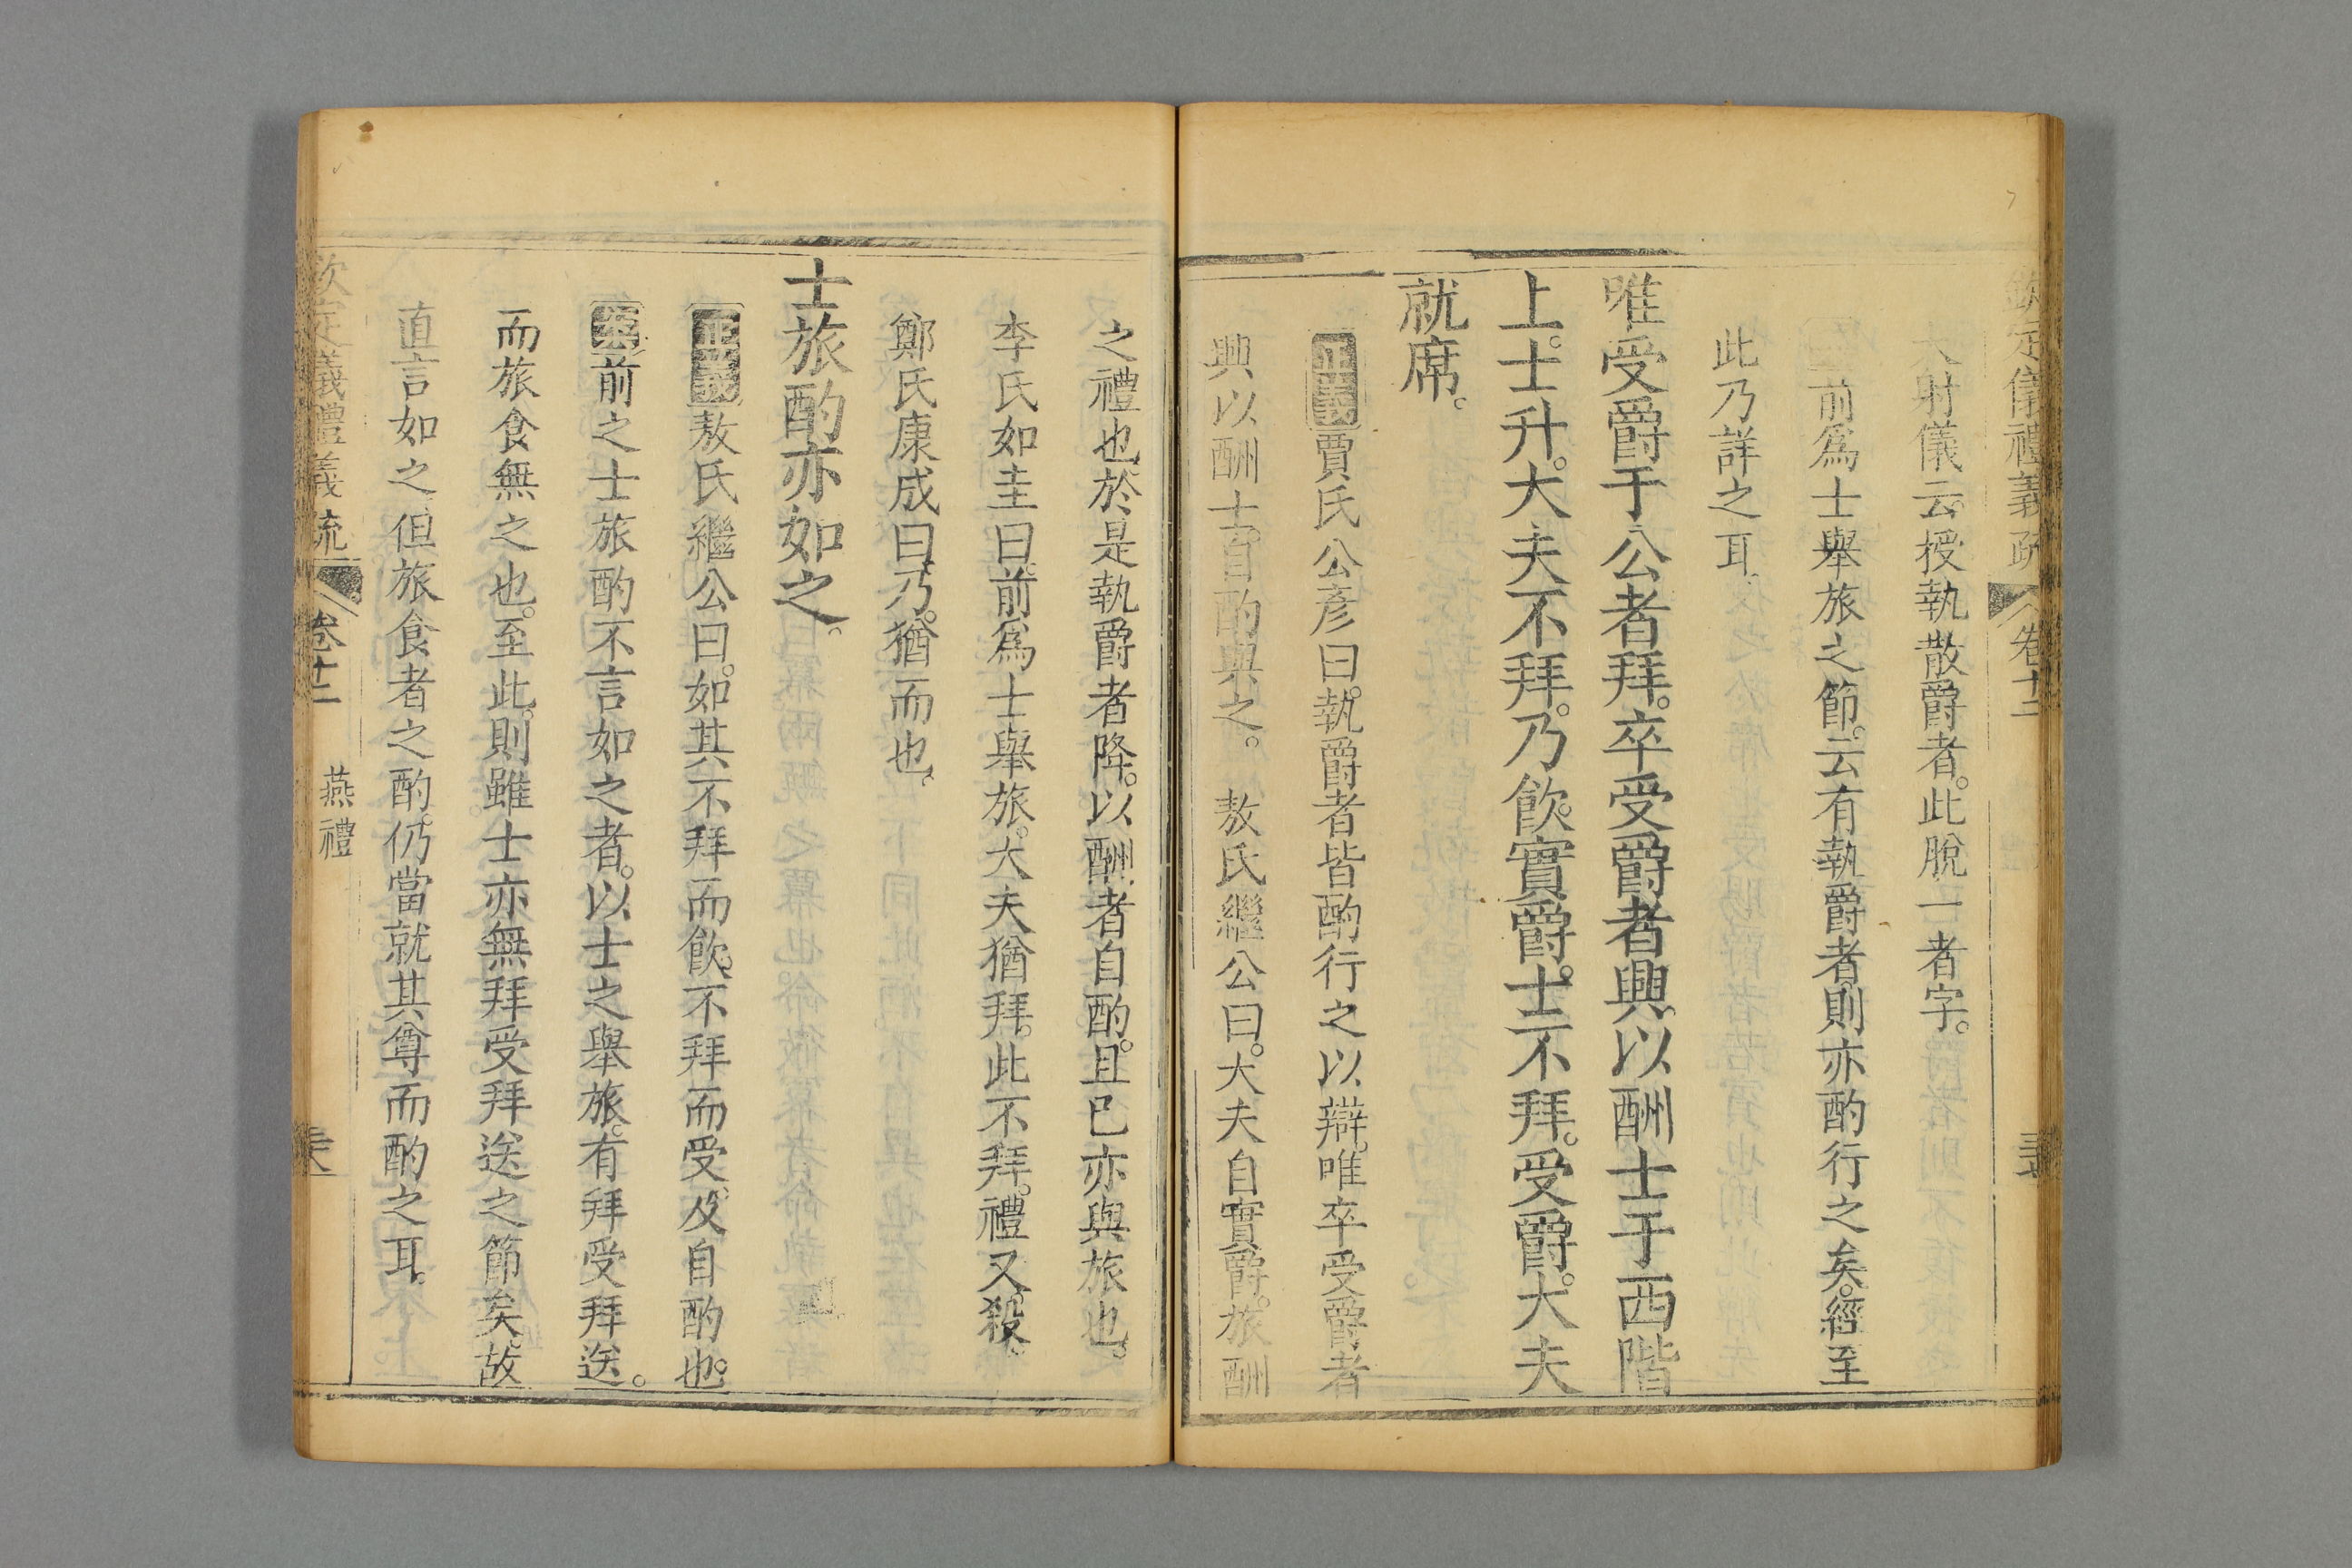 欽定儀禮義疏 卷十二
大射儀云授執散爵者。此脫一者字。
前爲士舉旅之節。云有執爵者。則亦酌行之矣。經至
此乃詳之耳。
唯受爵于公者拜。卒受爵者興。以酬士于西階
上。士升。大夫不拜。乃飲。實爵。士不拜。受爵。大夫
就席。
正義賈氏公彥曰。執爵者皆酌行之以辯。唯卒受爵者
興以酬士。自酌與之。 敖氏繼公曰。大夫自實爵。旅酬
之禮也。於是執爵者降。以酬者自酌。且已亦與旅也。
李氏如圭曰。前爲士舉旅。大夫猶拜。此不拜。禮又殺。
鄭氏康成曰。乃。猶而也。
士旅酌亦如之。
正義敖氏繼公曰。如其不拜而飲。不拜而受。及自酌也。
案前之士旅酌不言如之者。以士之舉旅。有拜受拜送。
而旅食無之也。至此。則雖士亦無拜受拜送之節矣。故
直言如之。但旅食者之酌。仍當就其尊而酌之耳。
欽定儀禮義疏 卷十二 燕禮